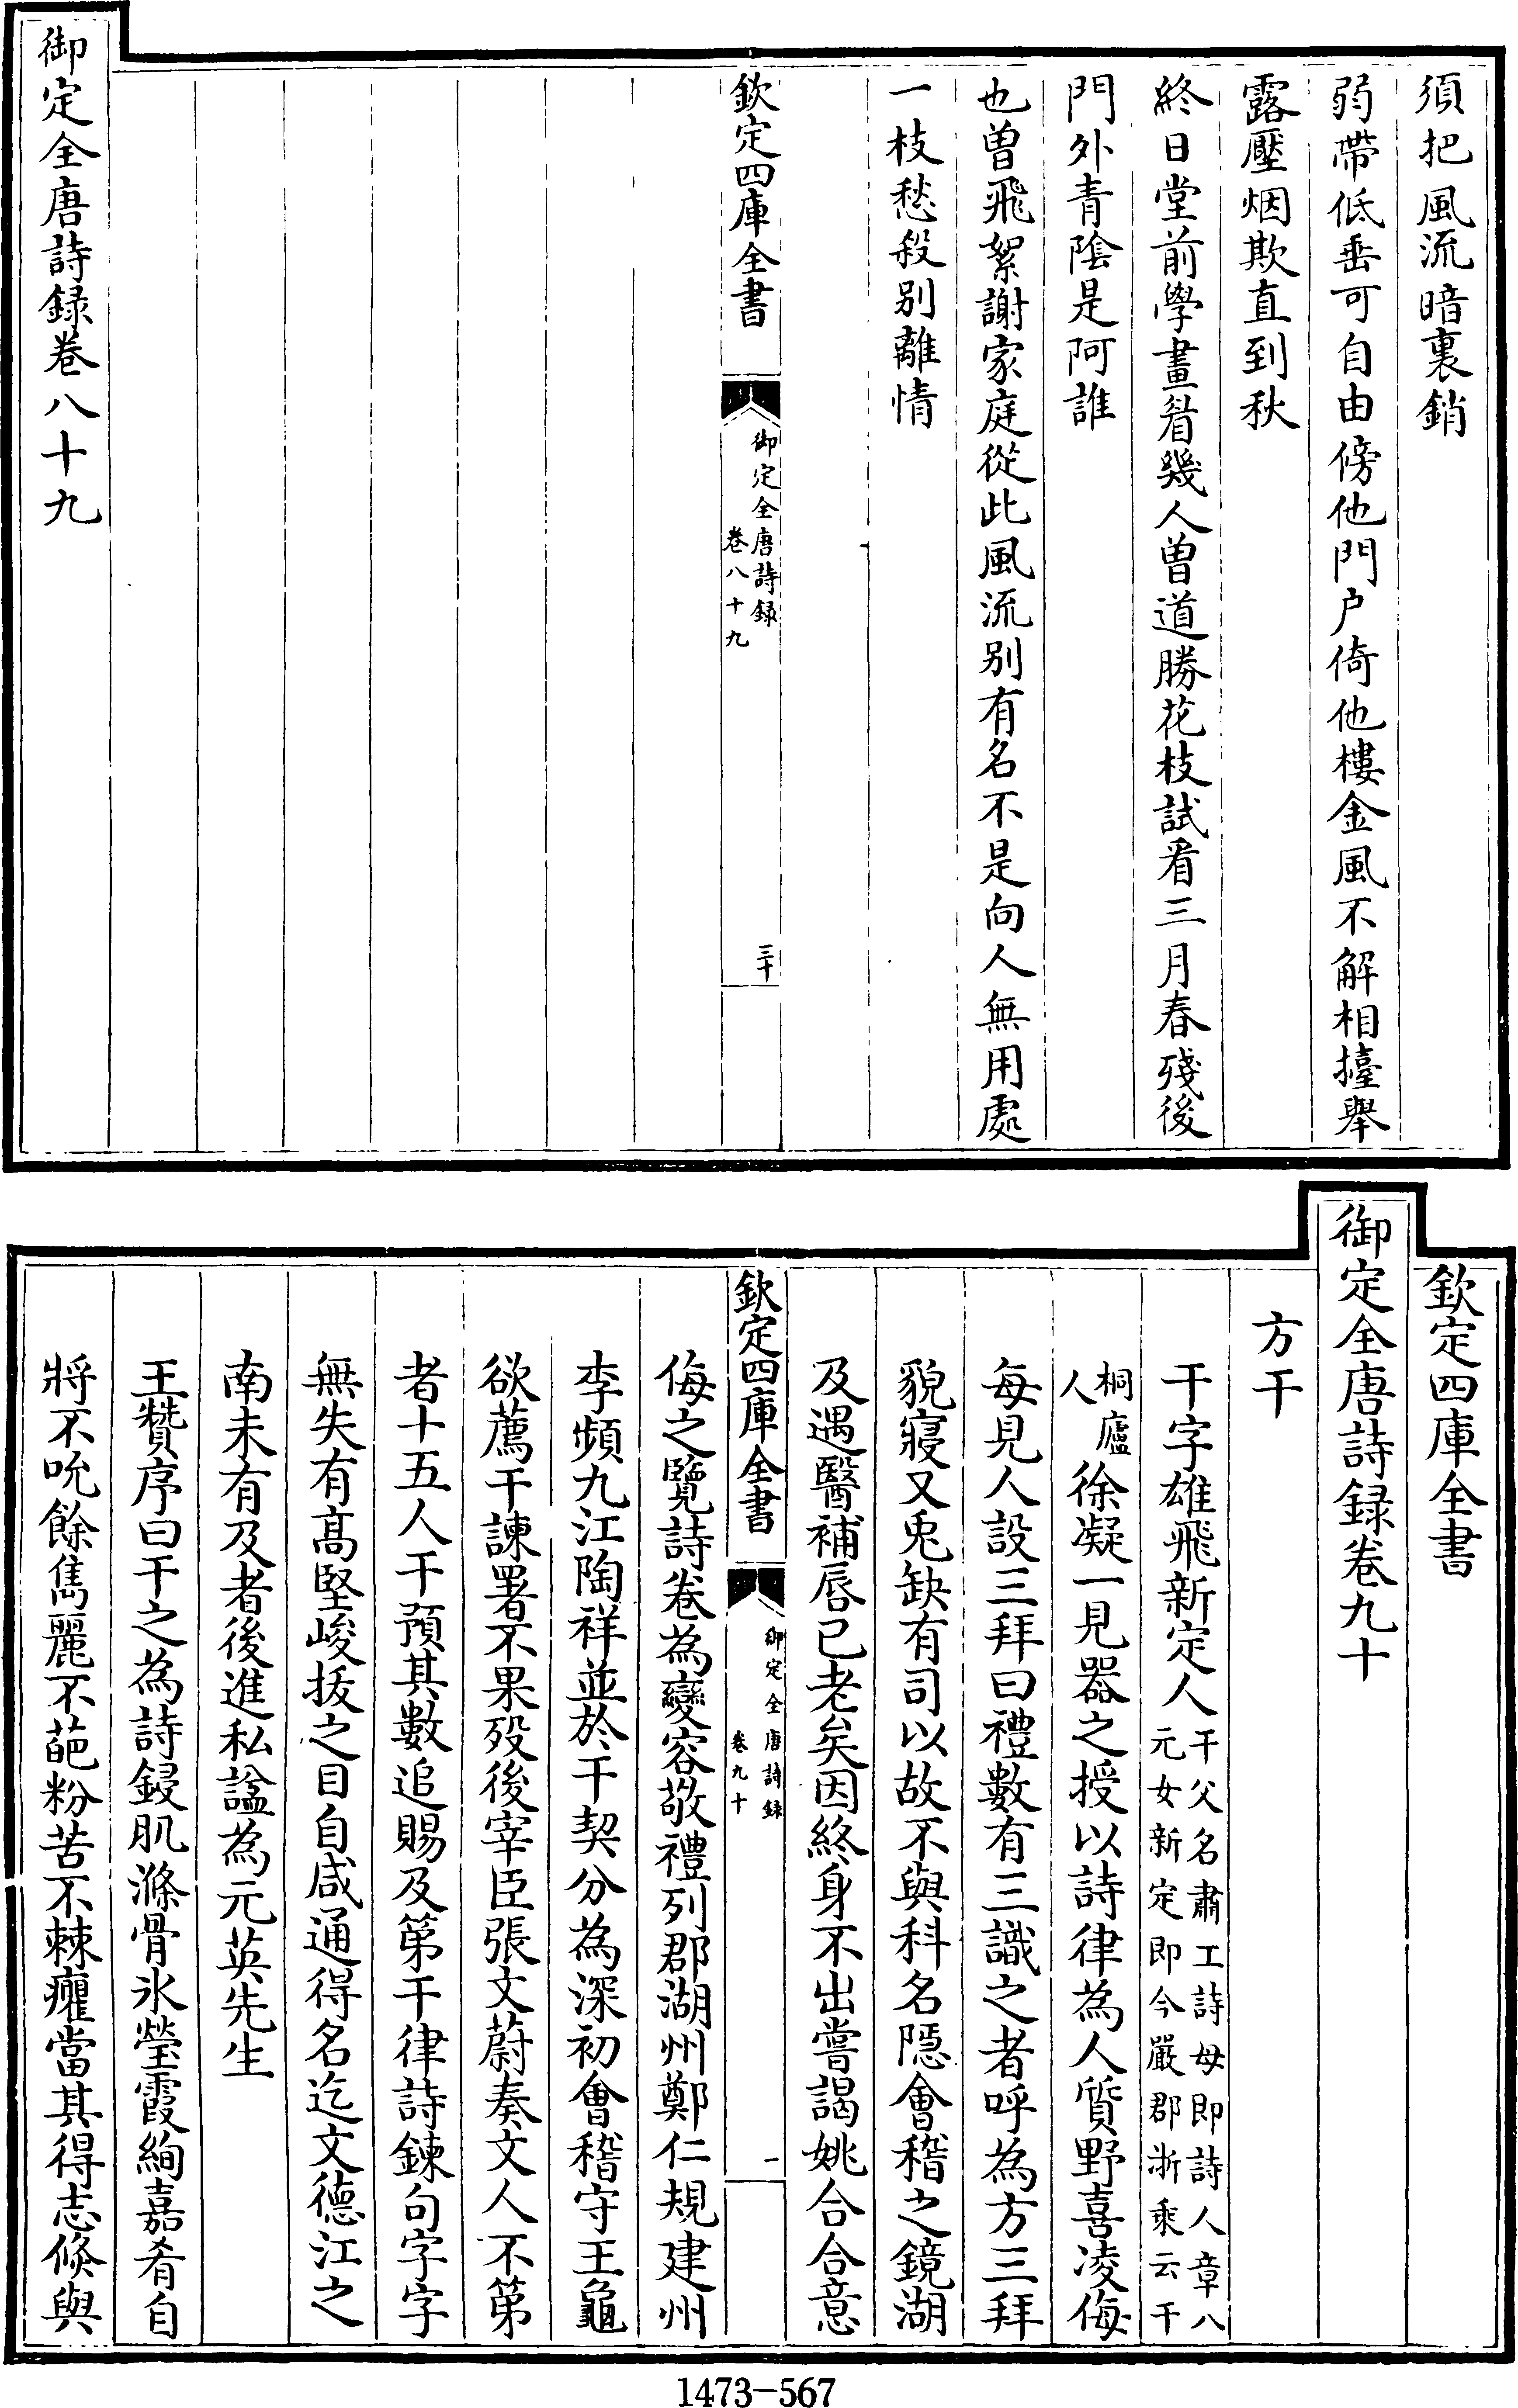 須把風流暗裏銷
弱帶低垂可自由傍他門户倚他樓金風不解相擡舉
露壓烟欺直到秋
終日堂前學畫眉幾人曽道勝花枝試看三月春殘後
門外青陰是阿誰
也曽飛絮謝家庭從此風流别有名不是向人無用處
一枝愁殺别離情
欽定四庫全書
御定全唐詩録
卷八十九
三十
御定全唐詩録卷八十九
欽定四庫全書
御定全唐詩録卷九十
方干
干字雄飛新定人干父名肅工詩母即詩人章八
元女新定即今嚴郡浙乘云干
桐廬
人
徐凝一見器之授以詩律為人質野喜凌侮
每見人設三拜曰禮數有三識之者呼為方三拜
貌寢又兎缺有司以故不與科名隠會稽之鏡湖
及遇醫補唇已老矣因終身不出嘗謁姚合合意
欽定四庫全書
御定全唐詩録
卷九十
一
侮之覽詩卷為變容敬禮列郡湖州鄭仁規建州
李頻九江陶祥並於干契分為深初會稽守王龜
欲薦干諫署不果歿後宰臣張文蔚奏文人不第
者十五人干預其數追賜及第干律詩鍊句字字
無失有髙堅峻拔之目自咸通得名迄文德江之
南未有及者後進私諡為元英先生
王贊序曰干之為詩鋟肌滌骨氷瑩霞絢嘉肴自
將不吮餘雋麗不葩粉苦不棘癯當其得志倏與
1473-567